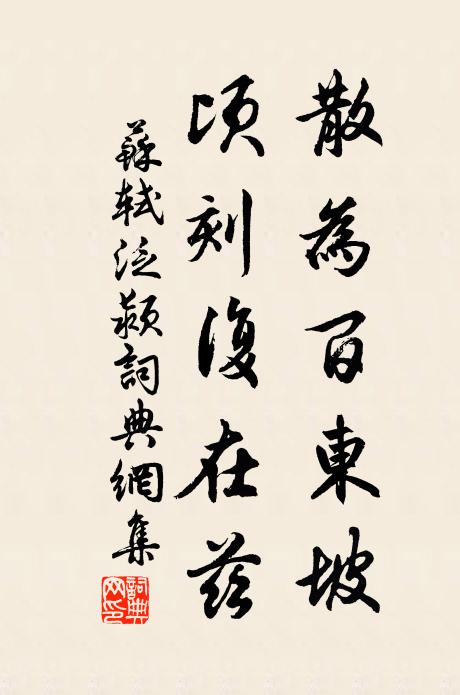 散為百東坡
頃刻復在茲
蘇軾泛潁詞典網集
詞典
網印